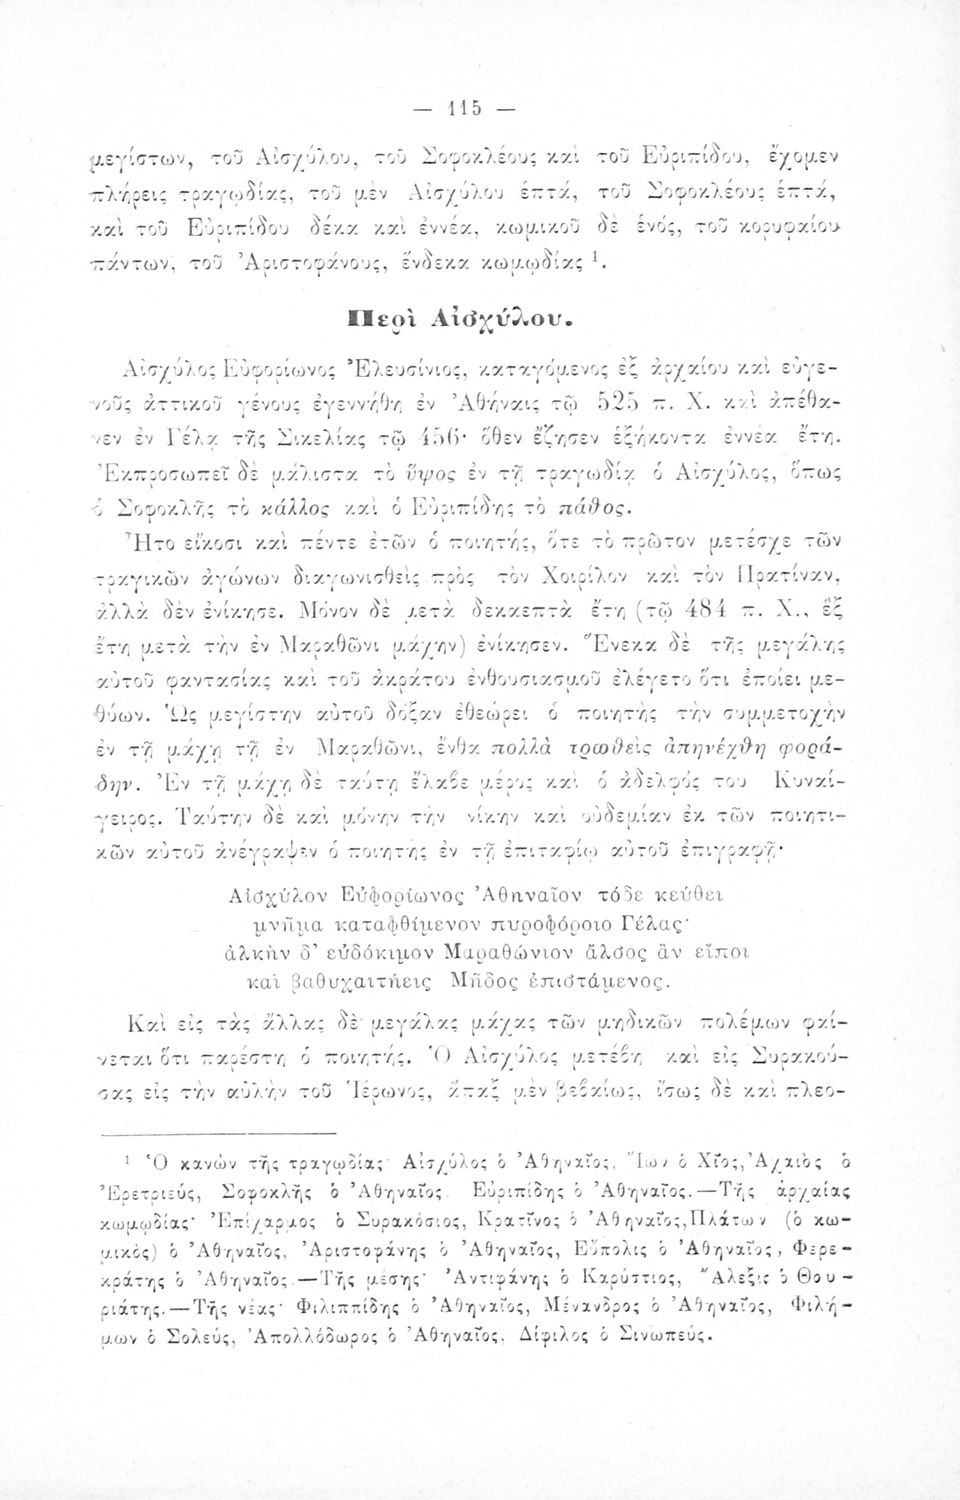 — 115 —
μεγίστων, τοῦ Αἰσχύλου, τοῦ Σοφοκλέους καὶ τοῦ Εὐριπίδου, ἔχομεν
πλήρεις τραγῳδίας, τοῦ μὲν Αἰσχύλου ἑπτά, τοῦ Σοφοκλέους ἑπτά,
καὶ τοῦ Εὐριπίδου δέκα καὶ ἐννέα, κωμικοῦ δὲ ἑνός, τοῦ κορυφαίου
πάντων, τοῦ Ἀριστοφάνους, ἕνδεκα κωμῳδίας ¹.
Περὶ Αἰσχύλου.
Αἰσχύλος Εὐφορίωνος Ἐλευσίνιος, καταγόμενος ἐξ ἀρχαίου καὶ εὐγε-
νοῦς ἀττικοῦ γένους ἐγεννήθη ἐν Ἀθήναις τῷ 525 π. Χ. καὶ ἀπέθα-
νεν ἐν Γέλᾳ τῆς Σικελίας τῷ 456· ὅθεν ἔζησεν ἑξήκοντα ἐννέα ἔτη.
Ἐκπροσωπεῖ δὲ μάλιστα τὸ ὕψος ἐν τῇ τραγῳδίᾳ ὁ Αἰσχύλος, ὅπως
ὁ Σοφοκλῆς τὸ κάλλος καὶ ὁ Εὐριπίδης τὸ πάθος.
Ἦτο εἴκοσι καὶ πέντε ἐτῶν ὁ ποιητής, ὅτε τὸ πρῶτον μετέσχε τῶν
τραγικῶν ἀγώνων διαγωνισθεὶς πρὸς τὸν Χοιρίλον καὶ τὸν Πρατίναν,
ἀλλὰ δὲν ἐνίκησε. Μόνον δὲ μετὰ δεκαεπτὰ ἔτη (τῷ 484 π. Χ., ἓξ
ἔτη μετὰ τὴν ἐν Μαραθῶνι μάχην) ἐνίκησεν. Ἕνεκα δὲ τῆς μεγάλης
αὐτοῦ φαντασίας καὶ τοῦ ἀκράτου ἐνθουσιασμοῦ ἐλέγετο ὅτι ἐποίει με-
θύων. Ὡς μεγίστην αὐτοῦ δόξαν ἐθεώρει ὁ ποιητὴς τὴν συμμετοχὴν
ἐν τῇ μάχῃ τῇ ἐν Μαραθῶνι, ἔνθα πολλὰ τρωθεὶς ἀπηνέχθη φορά-
δην. Ἐν τῇ μάχῃ δὲ ταύτῃ ἔλαβε μέρος καὶ ὁ ἀδελφός του Κυναί-
γειρος. Ταύτην δὲ καὶ μόνην τὴν νίκην καὶ οὐδεμίαν ἐκ τῶν ποιητι-
κῶν αὐτοῦ ἀνέγραψεν ὁ ποιητὴς ἐν τῇ ἐπιταφίῳ αὐτοῦ ἐπιγραφῇ·
Αἰσχύλον Εὐφορίωνος Ἀθηναῖον τόδε κεύθει
μνῆμα καταφθίμενον πυροφόροιο Γέλας·
ἀλκὴν δ' εὐδόκιμον Μαραθώνιον ἄλσος ἂν εἴποι
καὶ βαθυχαιτήεις Μῆδος ἐπιστάμενος.
Καὶ εἰς τὰς ἄλλας δὲ μεγάλας μάχας τῶν μηδικῶν πολέμων φαί-
νεται ὅτι παρέστη ὁ ποιητής. Ὁ Αἰσχύλος μετέβη καὶ εἰς Συρακού-
σας εἰς τὴν αὐλὴν τοῦ Ἱέρωνος, ἅπαξ μὲν βεβαίως, ἴσως δὲ καὶ πλεο-
¹ Ὁ κανὼν τῆς τραγῳδίας· Αἰσχύλος ὁ Ἀθηναῖος, Ἴων ὁ Χῖος, Ἀχαιὸς ὁ
Ἐρετριεύς, Σοφοκλῆς ὁ Ἀθηναῖος, Εὐριπίδης ὁ Ἀθηναῖος.—Τῆς ἀρχαίας
κωμῳδίας· Ἐπίχαρμος ὁ Συρακόσιος, Κρατῖνος ὁ Ἀθηναῖος, Πλάτων (ὁ κω-
μικὸς) ὁ Ἀθηναῖος, Ἀριστοφάνης ὁ Ἀθηναῖος, Εὔπολις ὁ Ἀθηναῖος, Φερε-
κράτης ὁ Ἀθηναῖος.—Τῆς μέσης· Ἀντιφάνης ὁ Καρύστιος, Ἄλεξις ὁ Θου-
ριάτης.—Τῆς νέας· Φιλιππίδης ὁ Ἀθηναῖος, Μένανδρος ὁ Ἀθηναῖος, Φιλή-
μων ὁ Σολεύς, Ἀπολλόδωρος ὁ Ἀθηναῖος, Δίφιλος ὁ Σινωπεύς.